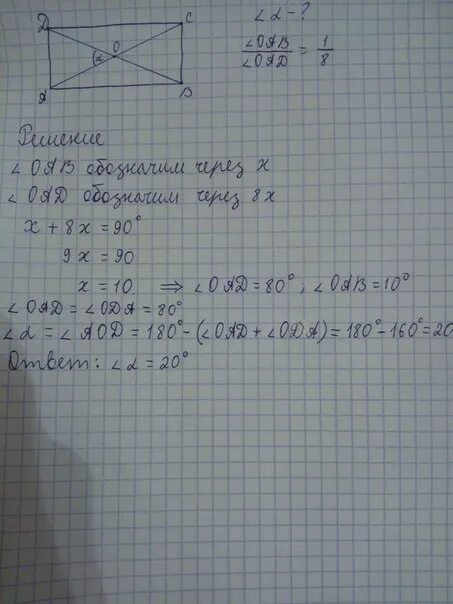 D C
O
α
A B
∠α - ?
∠OAB / ∠OAD = 1/8
Решение
∠OAB обозначим через x
∠OAD обозначим через 8x
x + 8x = 90°
9x = 90
x = 10 ⟹ ∠OAD = 80°, ∠OAB = 10°
∠OAD = ∠ODA = 80°
∠α = ∠AOD = 180° - (∠OAD + ∠ODA) = 180° - 160° = 20
Ответ: ∠α = 20°